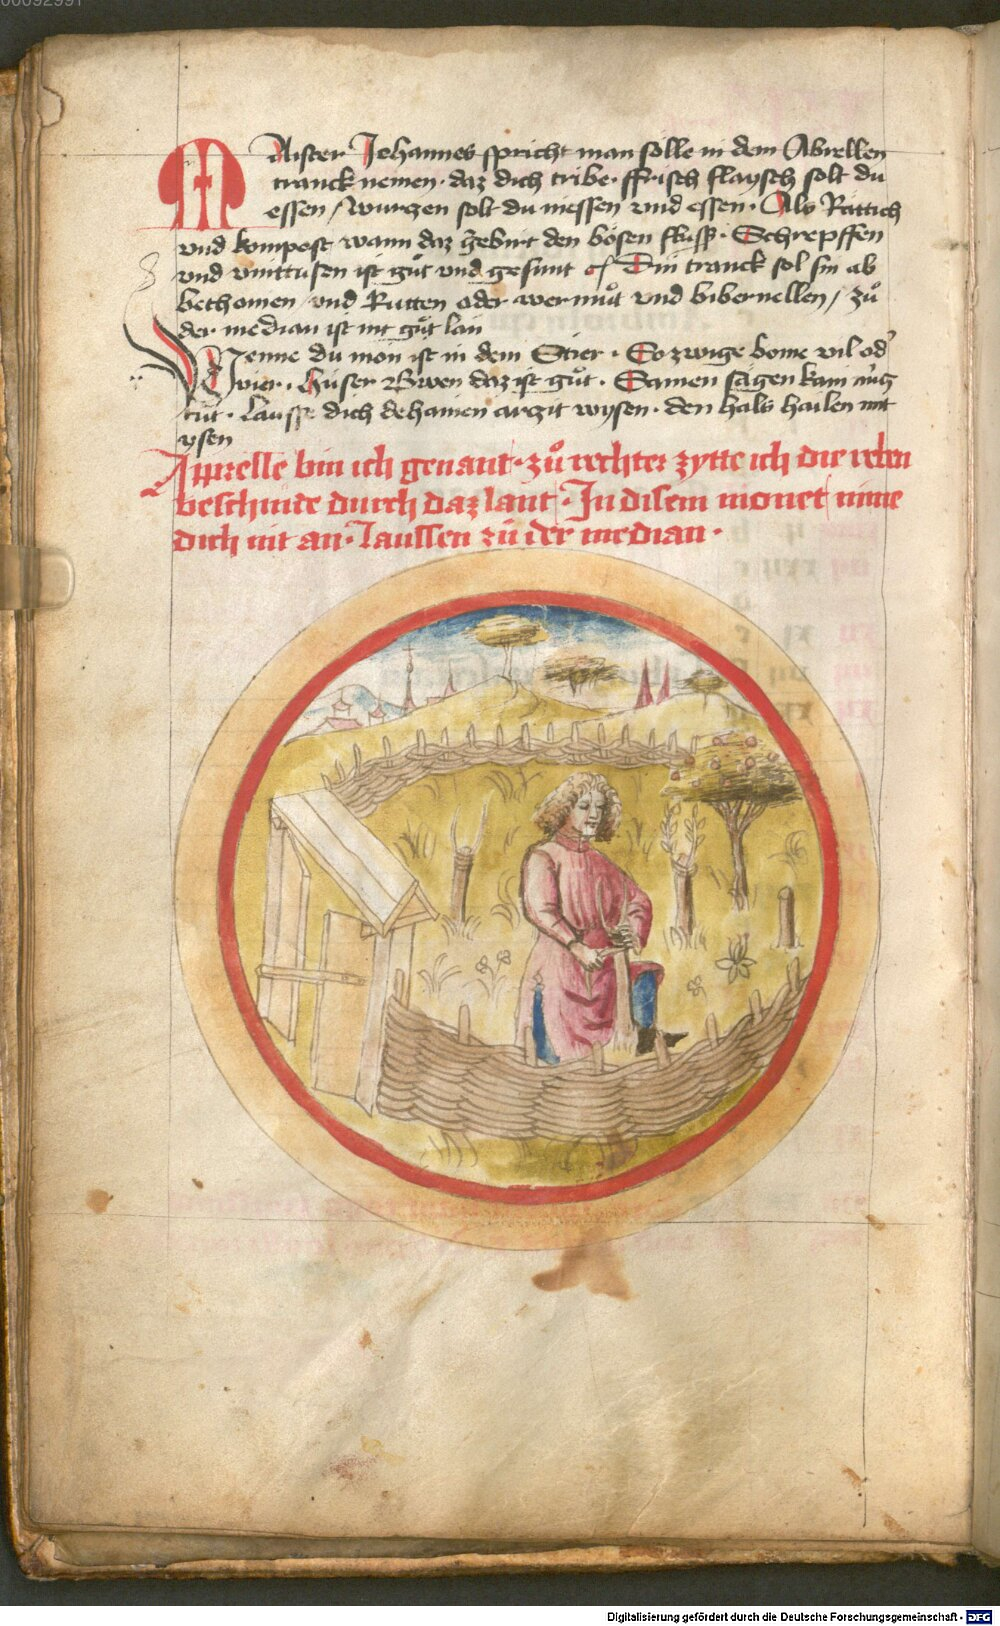 00092991
MAister Johannes spricht man sölle in dem Abrellen
tranck nemen · daz dich tribe · ffrisch flaysch solt du
essen / wurgen solt du messen und essen · Als Rättich
vnd kompost wann daz gebirt den bösen fluss · Schrepffen
vnd vinttusen ist gůt vnd gesunt Din tranck sol sin ab
bethonien / vnd Rutten oder wermůt vnd bibernellen / zů
der median ist nit gůt lan
Wenne du mon ist in dem Stier · So zwige bome vil od'
vier · Hüser Bwen daz ist gůt · Samen sägen kain
tůt · Lausse dich dehainen arczit wysen · den hals hailen mit
ysen
Apprelle bin ich genant · zů rechter zytte ich die reben
beschnide durch daz lant · In disem monet nime
dich nit an · Laussen zů der median ·
Digitalisierung gefördert durch die Deutsche Forschungsgemeinschaft - DFG